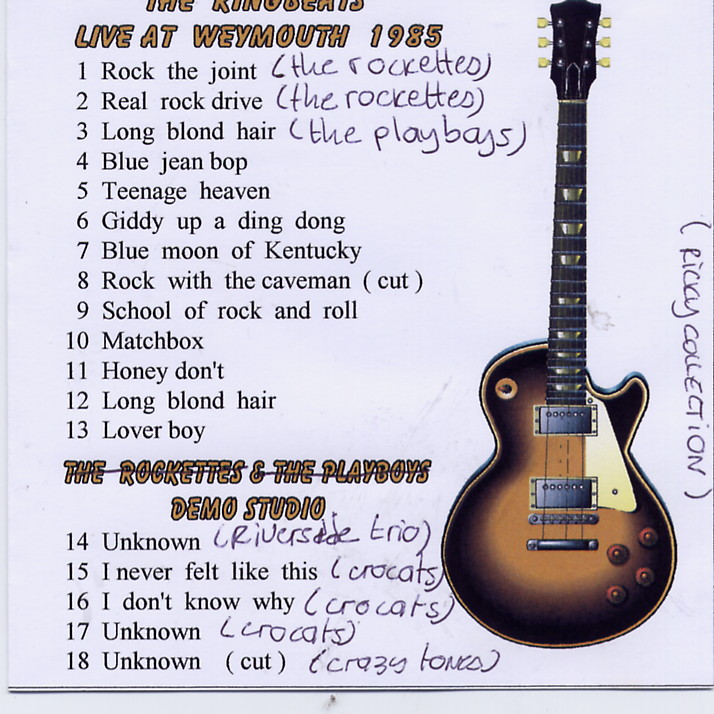 THE KINGBEATS
LIVE AT WEYMOUTH 1985
1 Rock the joint (the rockettes)
2 Real rock drive (the rockettes)
3 Long blond hair (the playboys)
4 Blue jean bop
5 Teenage heaven
6 Giddy up a ding dong
7 Blue moon of Kentucky
8 Rock with the caveman ( cut )
9 School of rock and roll
10 Matchbox
11 Honey don't
12 Long blond hair
13 Lover boy
THE ROCKETTES & THE PLAYBOYS
DEMO STUDIO
14 Unknown (Riverside trio)
15 I never felt like this (crocats)
16 I don't know why (crocats)
17 Unknown (crocats)
18 Unknown ( cut ) (crazy tones)
(RICKY COLLECTION)